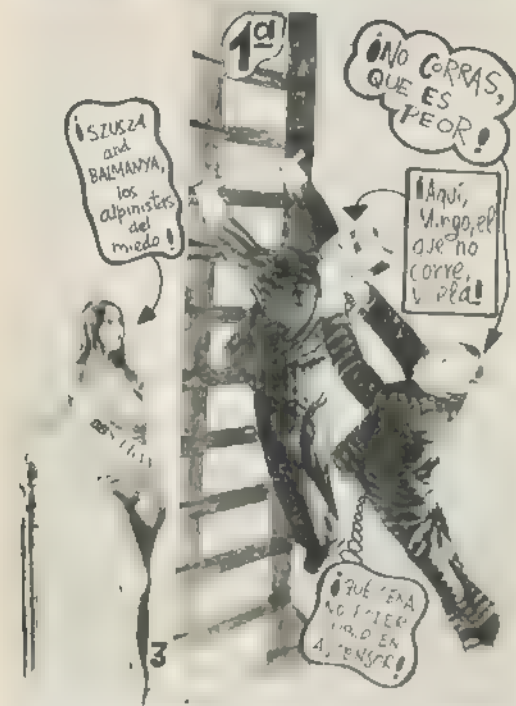 1ª
¡NO CORRAS,
QUE ES
PEOR!
¡SZUSZA
and
BALMANYA,
los
alpinistas
del
miedo!
¡Aquí,
el
que no
corre,
¡QUÉ PENA
NO
EN
3